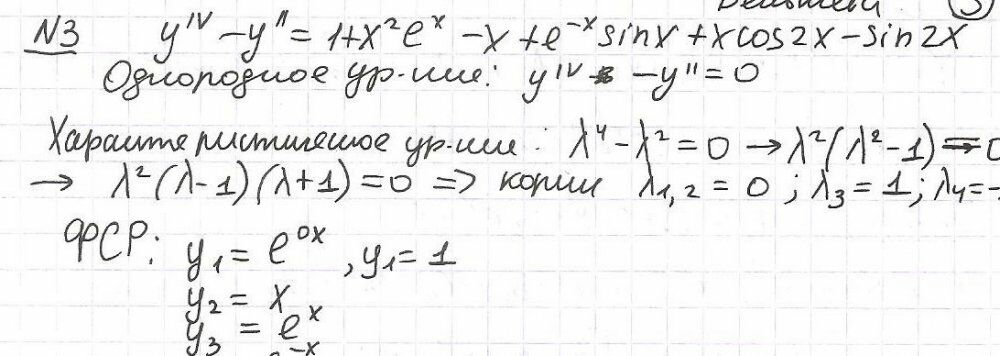 N3 y'ᴵⱽ - y'' = 1+x²eˣ - x + e⁻ˣsinx + xcos2x - sin2x
Однородное ур-ние: yᴵⱽ - y'' = 0
Характеристическое ур-ние: λ⁴ - λ² = 0 → λ²(λ²-1) = 0
→ λ²(λ-1)(λ+1) = 0 => корни λ₁,₂ = 0 ; λ₃ = 1 ; λ₄ = -
ФСР: y₁ = e⁰ˣ , y₁ = 1
y₂ = x
y₃ = eˣ
e⁻ˣ